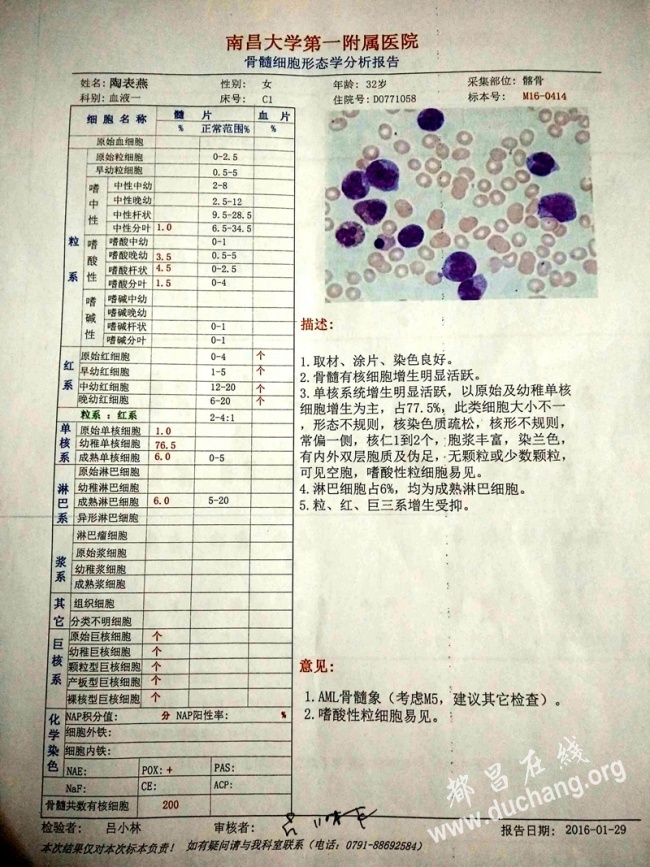 南昌大学第一附属医院
骨髓细胞形态学分析报告
姓名: 陶表燕 性别: 女 年龄: 32岁 采集部位: 髂骨
科别: 血液一 床号: C1 住院号: D0771058 标本号: M16-0414
细胞名称 髓片 % 正常范围% 血片 %
原始血细胞
粒系
原始粒细胞 0-2.5
早幼粒细胞 0.5-5
嗜中性
中性中幼 2-8
中性晚幼 2.5-12
中性杆状 9.5-28.5
中性分叶 1.0 6.5-34.5
嗜酸性
嗜酸中幼 0-1
嗜酸晚幼 3.5 0.5-5
嗜酸杆状 4.5 0-2.5
嗜酸分叶 1.5 0-4
嗜碱性
嗜碱中幼
嗜碱晚幼
嗜碱杆状 0-1
嗜碱分叶 0-1
红系
原始红细胞 0-4 个
早幼红细胞 1-5 个
中幼红细胞 12-20 个
晚幼红细胞 6-20 个
粒系 : 红系 2-4:1
单核系
原始单核细胞 1.0
幼稚单核细胞 76.5
成熟单核细胞 6.0 0-5
淋巴系
原始淋巴细胞
幼稚淋巴细胞
成熟淋巴细胞 6.0 5-20
异形淋巴细胞
淋巴瘤细胞
浆系
原始浆细胞
幼稚浆细胞
成熟浆细胞
其它
组织细胞
分类不明细胞
巨核系
原始巨核细胞 个
幼稚巨核细胞 个
颗粒型巨核细胞 个
产板型巨核细胞 个
裸核型巨核细胞 个
化学染色
NAP积分值: 分 NAP阳性率: %
细胞外铁:
细胞内铁:
NAE: POX: + PAS:
NaF: CE: ACP:
骨髓共数有核细胞 200
描述:
1. 取材、涂片、染色良好。
2. 骨髓有核细胞增生明显活跃。
3. 单核系统增生明显活跃，以原始及幼稚单核
细胞增生为主，占77.5%，此类细胞大小不一
，形态不规则，核染色质疏松，核形不规则，
常偏一侧，核仁1到2个，胞浆丰富，染兰色，
有内外双层胞质及伪足，无颗粒或少数颗粒，
可见空胞，嗜酸性粒细胞易见。
4. 淋巴细胞占6%，均为成熟淋巴细胞。
5. 粒、红、巨三系增生受抑。
意见:
1. AML骨髓象（考虑M5，建议其它检查）。
2. 嗜酸性粒细胞易见。
都昌在线
www.duchang.org
检验者: 吕小林 审核者: 报告日期: 2016-01-29
本次结果仅对本次标本负责！ 如有疑问请与我科室联系（电话: 0791-88692584）